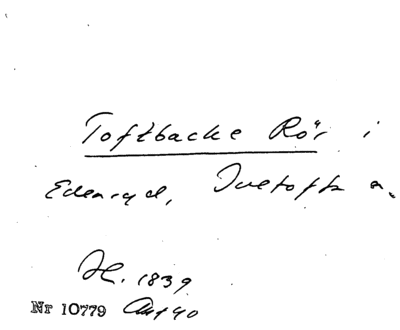 Toftbacke Rör i
Edenryd, Ivetofta
H. 1839
Nr 10779